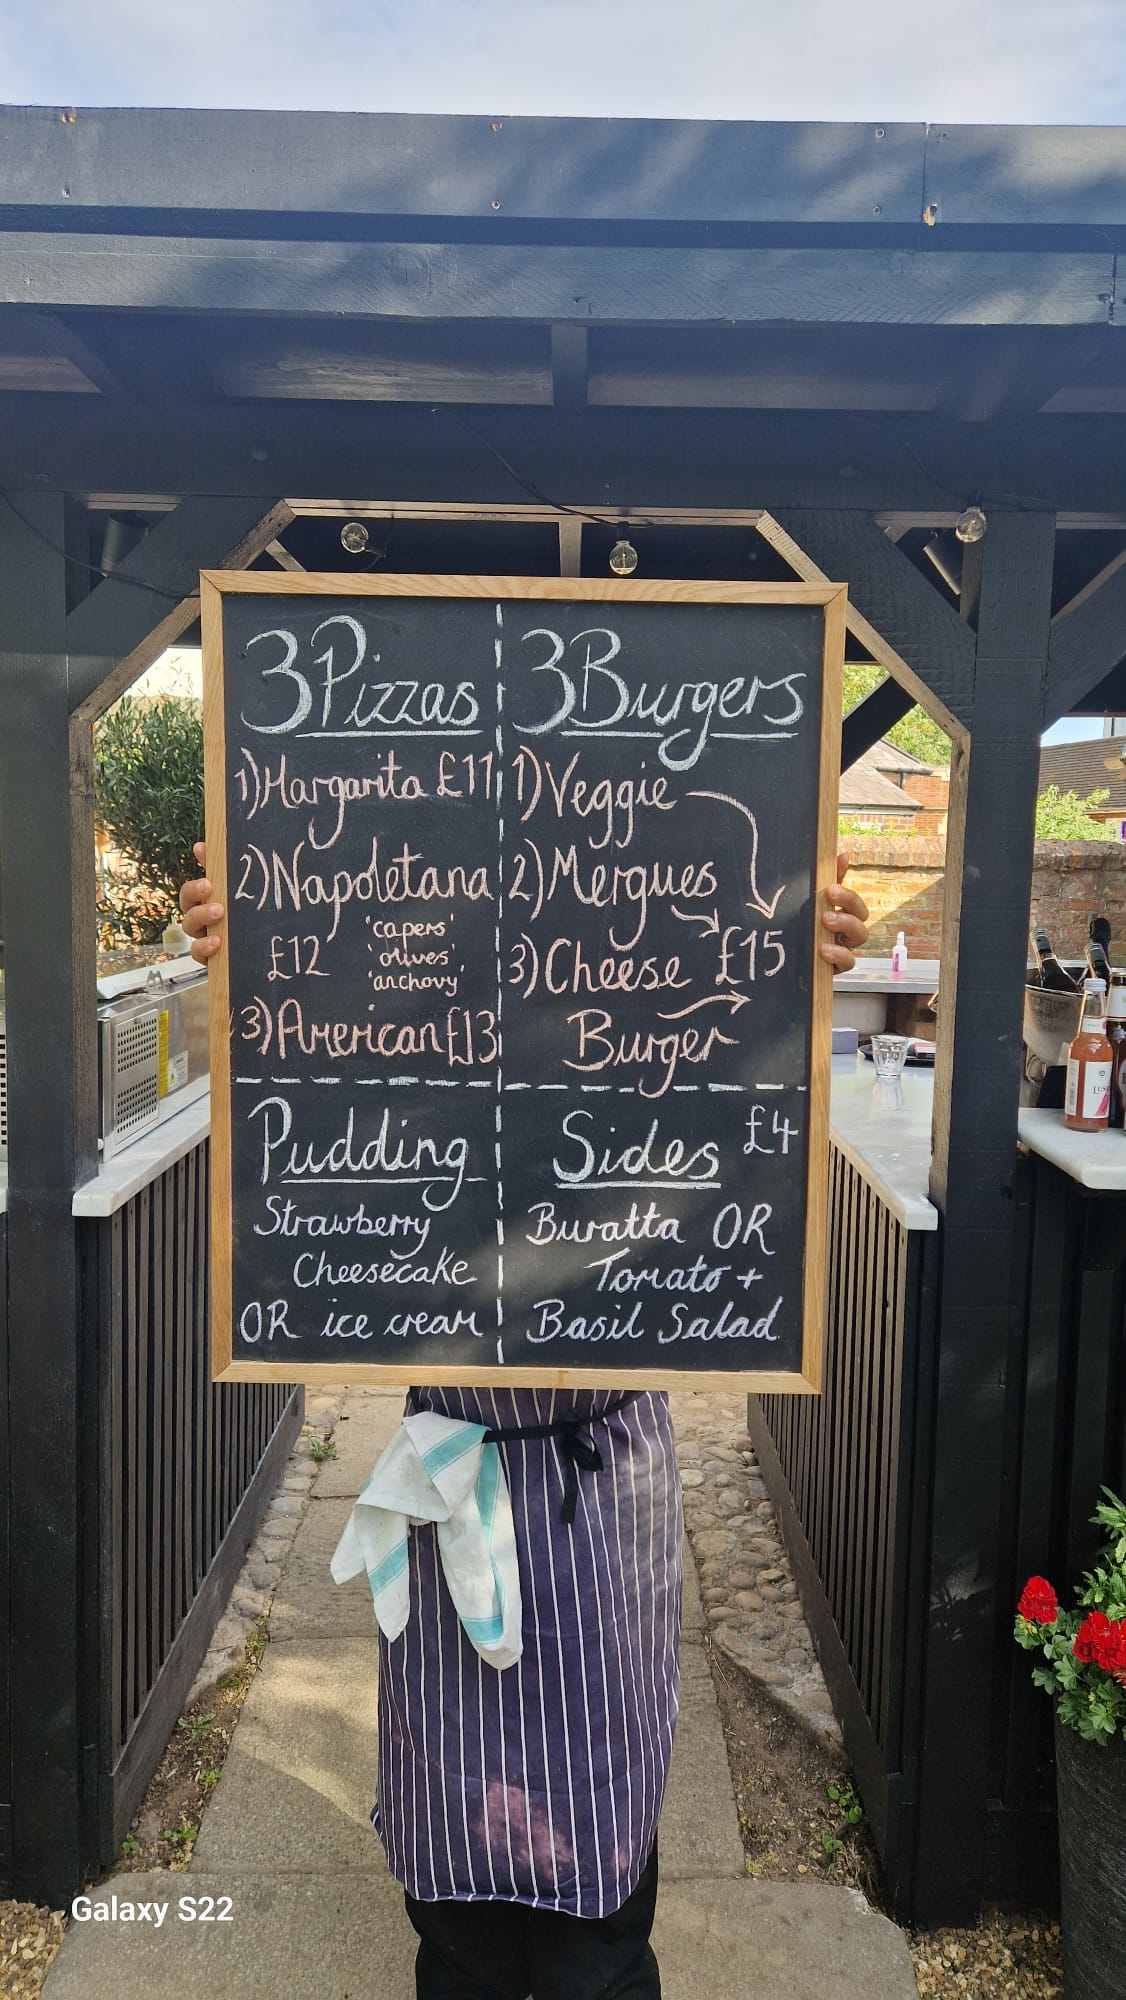 3 Pizzas
1) Margarita £11
2) Napoletana
£12
'capers'
'olives'
'anchovy'
3) American £13
3 Burgers
1) Veggie
2) Mergues
3) Cheese £15
Burger
Pudding
Strawberry
Cheesecake
OR ice cream
Sides £4
Buratta OR
Tomato +
Basil Salad
Galaxy S22